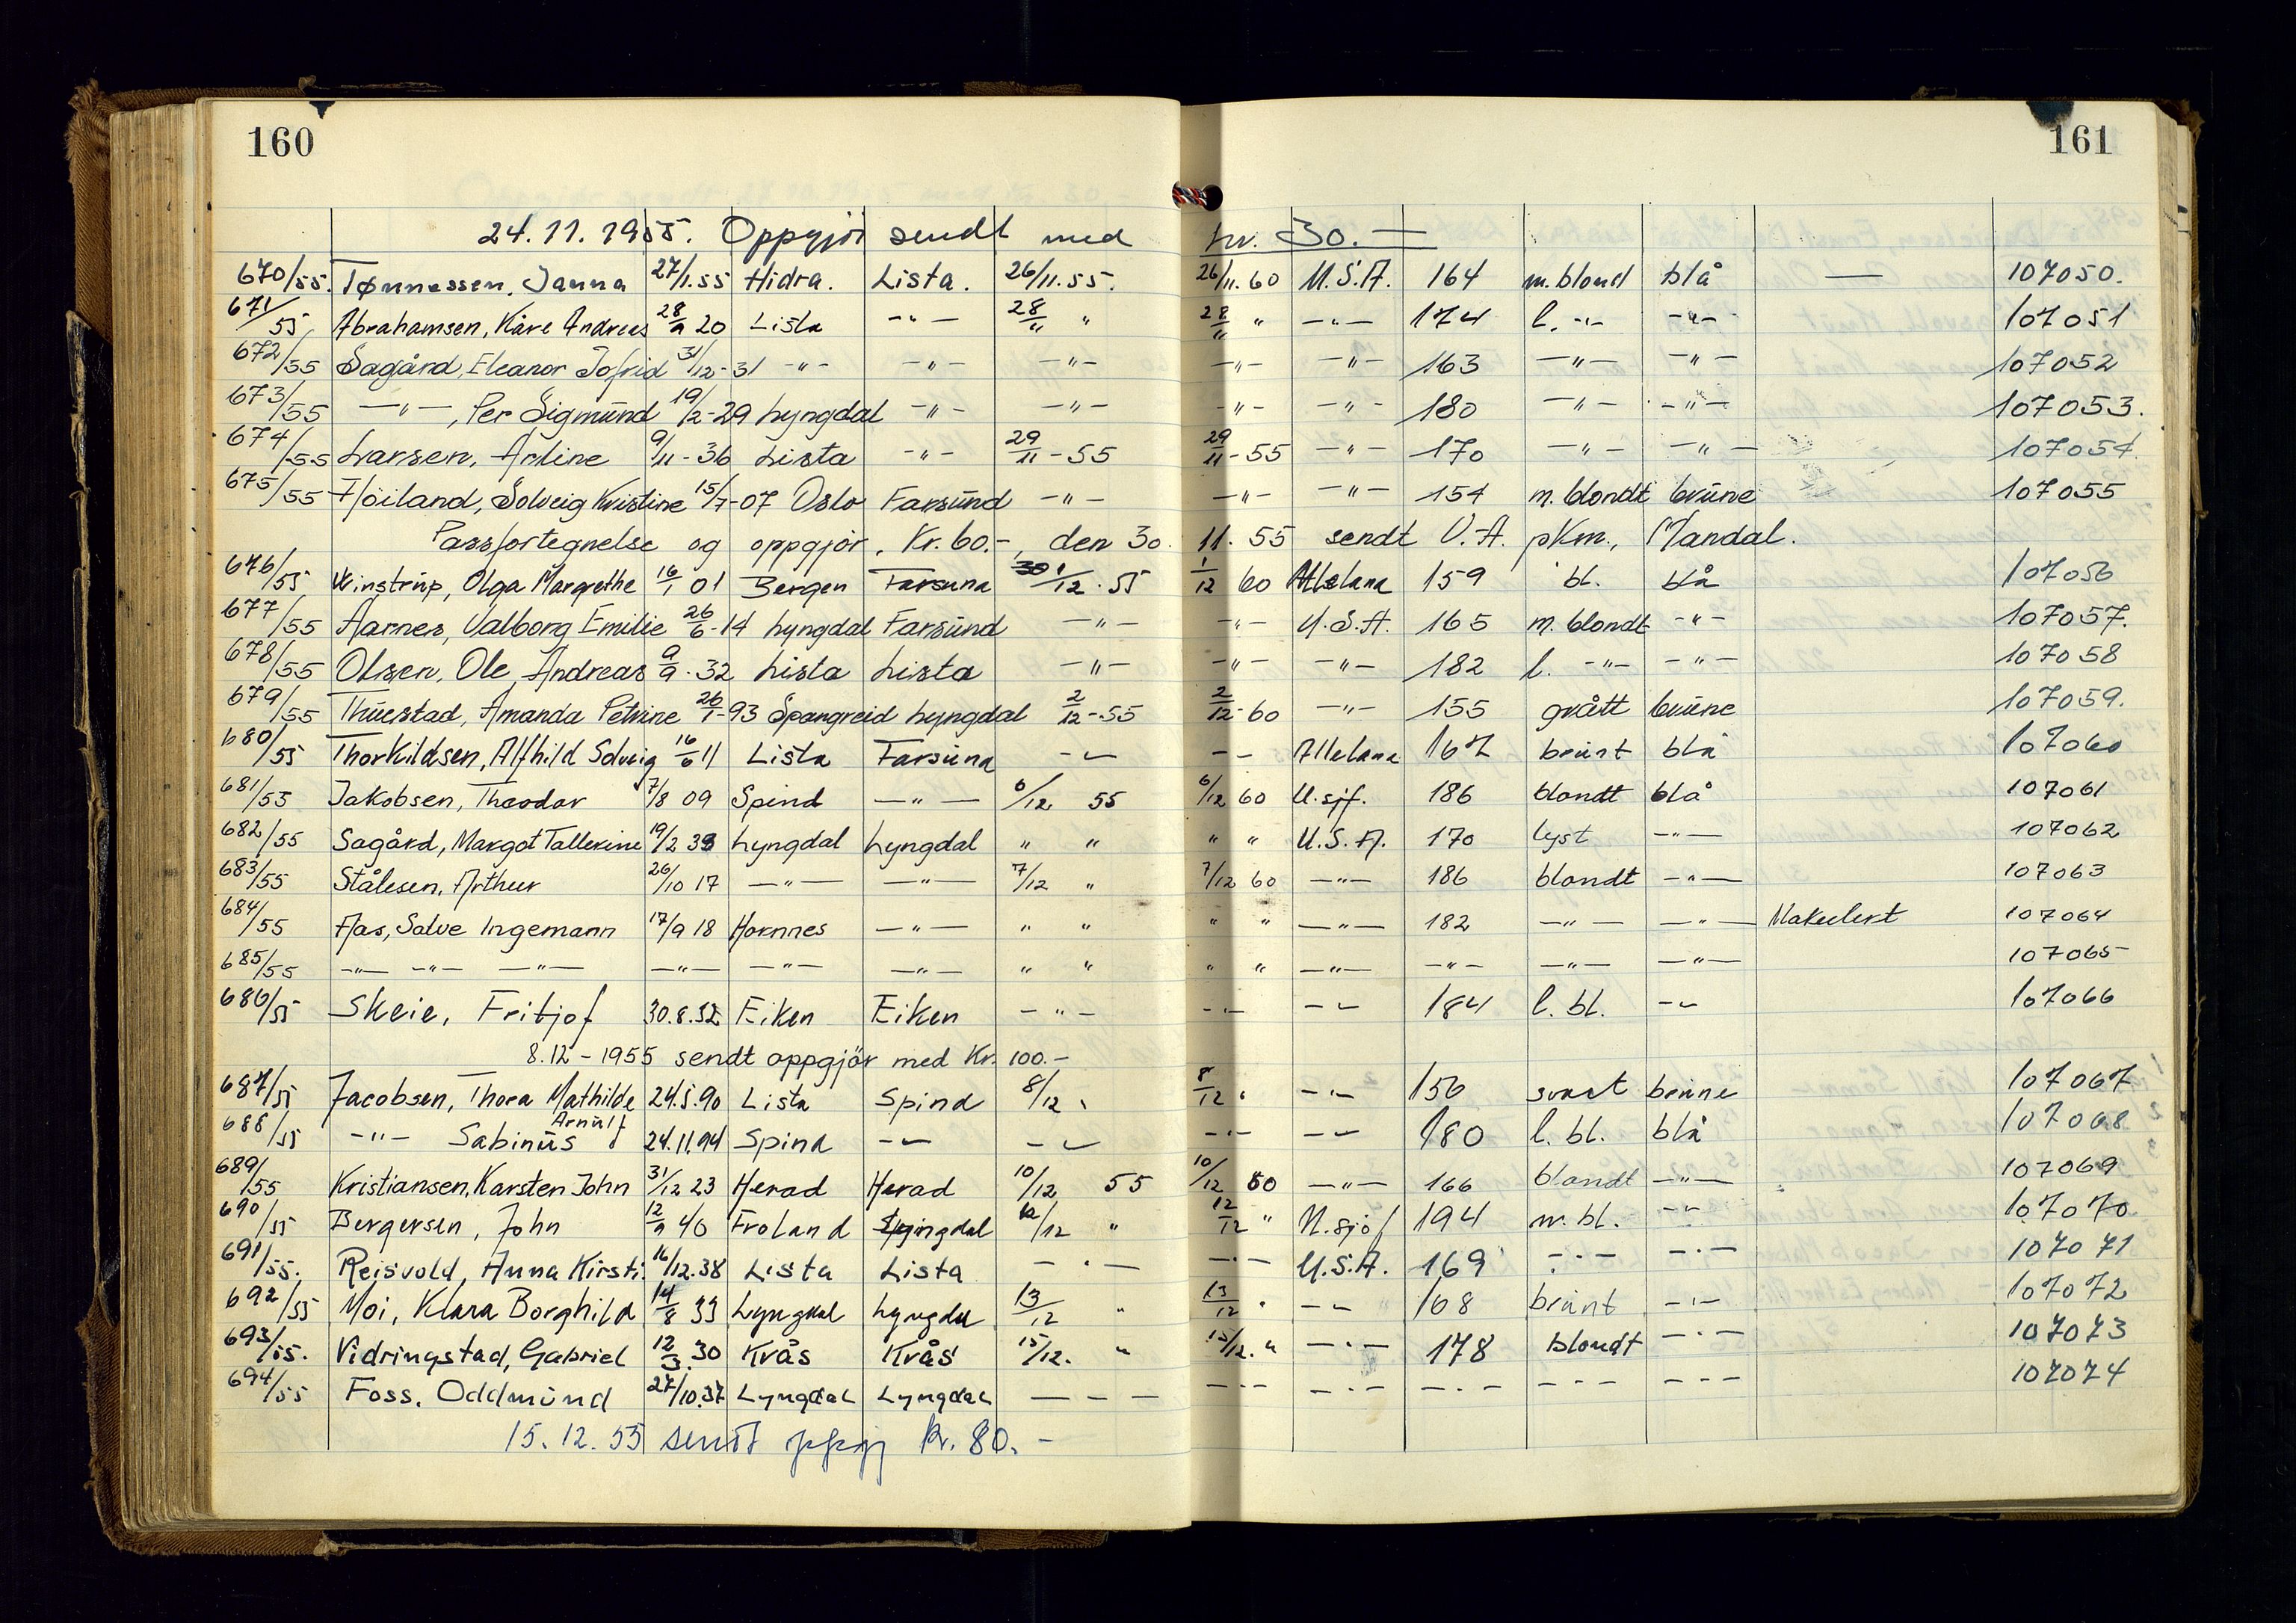 160 161
24.11.1955. Oppgjör sendt med kr. 30.—
670/55. Tønnessen, Janna 27/1.55 Hidra. Lista. 26/11.55. 26/11.60 U.S.A. 164 m.blond blå — 107050.
671/55 Abrahamsen, Kåre Andreas 28/9 20 Lista -"- 28/" " 28/" " -"- 174 l. -"- -"- 107051
672/55 Sagård, Eleanor Jofrid 31/12-31 -"- -"- -"- -"- -"- 163 -"- -"- 107052
673/55 -"-, Per Sigmund 19/2-29 Lyngdal -"- -"- -"- -"- 180 -"- -"- 107053.
674/55 Larsen, Arline 9/11-36 Lista -"- 29/11-55 29/11-55 -"- 170 -"- -"- 107054.
675/55 Höiland, Solveig Kristine 15/7-07 Oslo Farsund -"- -"- -"- 154 m.blondt brune 107055
Passfortegnelse og oppgjör, Kr. 60.-, den 30. 11.55 sendt U.A. pKm., Mandal.
676/55 Winstrup, Olga Margrethe 16/1 01 Bergen Farsund 1/12.55 1/12 60 159 bl. blå 107056
677/55 Aarnes, Valborg Emilie 26/6-14 Lyngdal Farsund -"- -"- U.S.A. 165 m.blondt -"- 107057.
678/55 Olsen, Ole Andreas 9/9.32 Lista Lista -"- -"- -"- 182 l. -"- -"- 107058
679/55 Thuestad, Amanda Petrine 26/1-93 Spangreid Lyngdal 2/12-55 2/12-60 -"- 155 grått brune 107059.
680/55 Thorkildsen, Alfhild Solveig 16/6 11 Lista Farsund -"- -- 167 brunt blå 107060
681/53 Jakobsen, Theodor 7/8 09 Spind -"- 6/12 55 6/12 60 U.sjf. 186 blondt blå 107061
682/55 Sagård, Margot Tallerine 19/2 33 Lyngdal Lyngdal " " " " U.S.A. 170 lyst -"- 107062
683/55 Stålesen, Arthur 26/10 17 -"- -"- 7/12 " 7/12 60 -"- 186 blondt -"- 107063
684/55 Aas, Salve Ingemann 17/9 18 Hornnes -"- " " " " -"- 182 -"- -"- Makulert 107064
685/55 -"- -"- -"- -"- -"- -"- " " " " -"- -"- -"- -"- 107065
686/55 Skeie, Fritjof 30.8.32 Eiken Eiken -"- -"- -"- 184 l. bl. -"- 107066
8.12-1955 sendt oppgjör med Kr. 100.-
687/55 Jacobsen, Thora Mathilde 24.5.90 Lista Spind 8/12 " 8/12 " -"- 156 svart brune 107067
688/55 -"- Sabinus Arnulf 24.11.94 Spind -"- -"- -"- -"- 180 l. bl. blå 107068
689/55 Kristiansen, Karsten John 31/12 23 Herad Herad 10/12 55 10/12 60 -"- 166 blondt -"- 107069
690/55 Bergersen, John 12/9 40 Froland Lyngdal 12/12 " 12/12 " U.sjöf 194 m. bl. -"- 107070
691/55. Reisvold, Anna Kirsti 16/12.38 Lista Lista -"- -"- U.S.A. 169 -"- -"- 107071
692/55 Moi, Klara Borghild 14/8 33 Lyngdal Lyngdal 13/12 " 13/12 " -"- 168 brunt -"- 107072
693/55. Vidringstad, Gabriel 12/3.30 Kvås Kvås 15/12. " 15/12. " -"- 178 Blondt -"- 107073
694/55 Foss, Oddmund 27/10.37 Lyngdal Lyngdal --- -"- -"- -"- -"- -"- 107074
15.12.55 sendt oppgj kr. 80.-